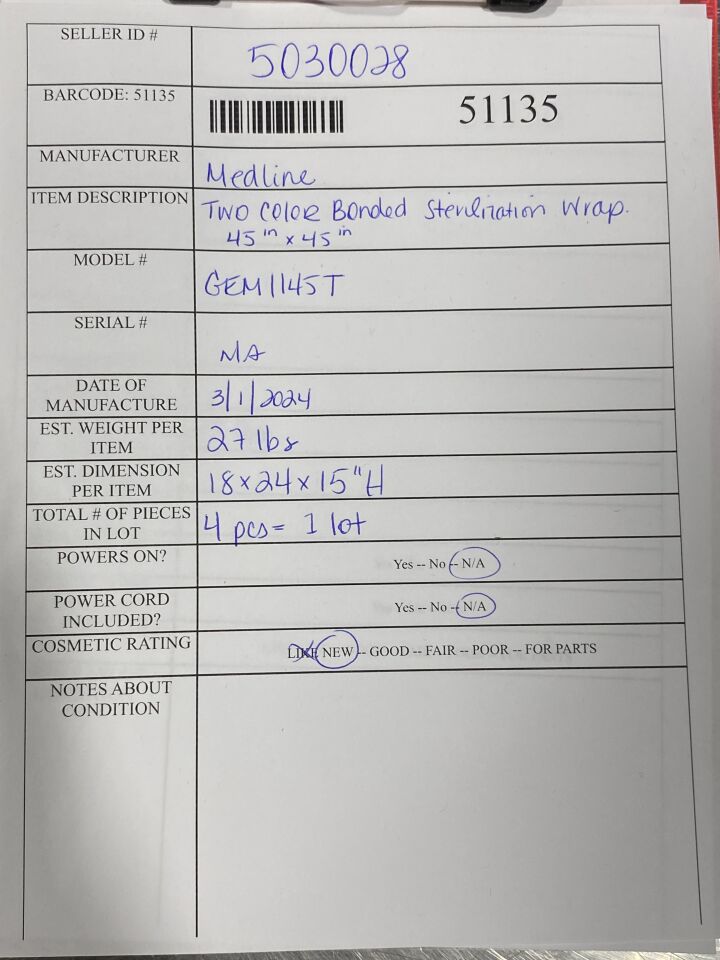 SELLER ID # 5030028
BARCODE: 51135 51135
MANUFACTURER Medline
ITEM DESCRIPTION Two Color Bonded Sterilization Wrap.
45 in x 45 in
MODEL # GEM1145T
SERIAL # NA
DATE OF
MANUFACTURE 3/1/2024
EST. WEIGHT PER
ITEM 27 lbs
EST. DIMENSION
PER ITEM 18x24x15"H
TOTAL # OF PIECES
IN LOT 4 pcs = 1 lot
POWERS ON? Yes -- No -- N/A
POWER CORD
INCLUDED? Yes -- No -- N/A
COSMETIC RATING LIKE NEW -- GOOD -- FAIR -- POOR -- FOR PARTS
NOTES ABOUT
CONDITION